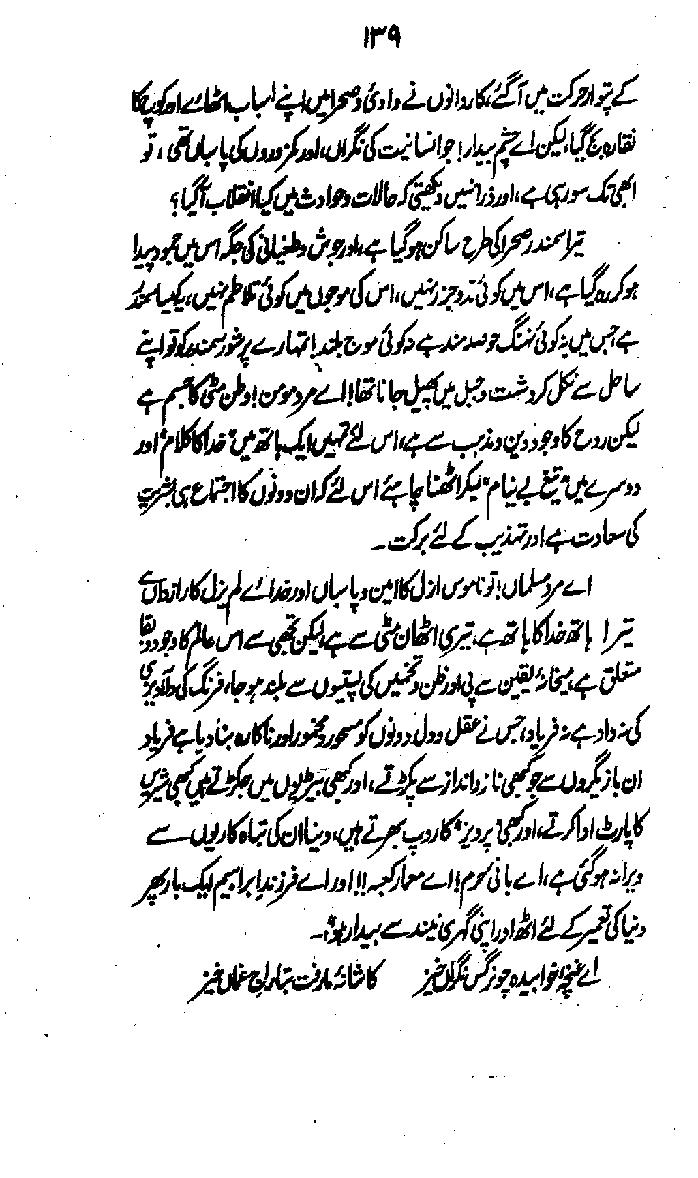 ۱۳۹
کے پتوار حرکت میں آگئے، کاروانوں نے وادی و صحرا میں اپنے اسباب اٹھائے اور کوچ کا
نقارہ بج گیا، لیکن اے چشم بیدار! جو انسانیت کی نگراں، اور کمزوروں کی پاسباں تھی، تو
ابھی تک سو رہی ہے، اور ذرا نہیں دیکھتی کہ حالات و حوادث میں کیا انقلاب آگیا؟
تیرا سمندر صحرا کی طرح ساکن ہوگیا ہے، اور جوش و طغیانی کی جگہ اس میں جمود پیدا
ہوکر رہ گیا ہے، اس میں کوئی مدوجزر نہیں، اس کی موجوں میں کوئی تلاطم نہیں، یہ کیسا سمندر
ہے جس میں نہ کوئی نہنگ حوصلہ مند ہے نہ کوئی موج بلند! تمہارے پرشور سمندر کو تو اپنے
ساحل سے نکل کر دشت و جبل میں پھیل جانا تھا! اے مرد مومن! وطن مٹی کا جسم ہے
لیکن روح کا وجود دین و مذہب سے ہے، اس لئے تمہیں ایک ہاتھ میں "خدا کا کلام" اور
دوسرے میں "تیغ بے نیام" لیکر اٹھنا چاہئے اس لئے کہ ان دونوں کا اجتماع ہی بشریت
کی سعادت ہے اور تہذیب کے لئے برکت۔
اے مرد مسلماں! تو ناموس ازل کا امین و پاسباں اور خدائے لم یزل کا رازداں ہے
تیرا ہاتھ خدا کا ہاتھ ہے، تیری اٹھان مٹی سے ہے، لیکن تجھی سے اس عالم کا وجود و بقا
متعلق ہے، میخانۂ یقین سے پی اور ظن و تخمین کی پستیوں سے بلند ہوجا، فرنگ کی دلآویزی
کی نہ داد ہے نہ فریاد، جس نے عقل و دل دونوں کو مسحور و مخمور اور ناکارہ بنا دیا ہے فریاد
ان بازیگروں سے جو کبھی ناز و انداز سے پکڑتے، اور کبھی بیڑیوں میں جکڑتے ہیں کبھی شیریں
کا پارٹ ادا کرتے، اور کبھی "پرویز" کا روپ بھرتے ہیں، دنیا ان کی تباہ کاریوں سے
ویرانہ ہوگئی ہے، اے بانی حرم!! اے معمار کعبہ!!! اور اے فرزند ابراہیم ایک بار پھر
دنیا کی تعمیر کے لئے اٹھ اور اپنی گہری نیند سے بیدار ہو"۔
اے غنچۂ خوابیدہ چو نرگس نگراں خیز کاشانۂ ما رفت بتاراج غماں خیز